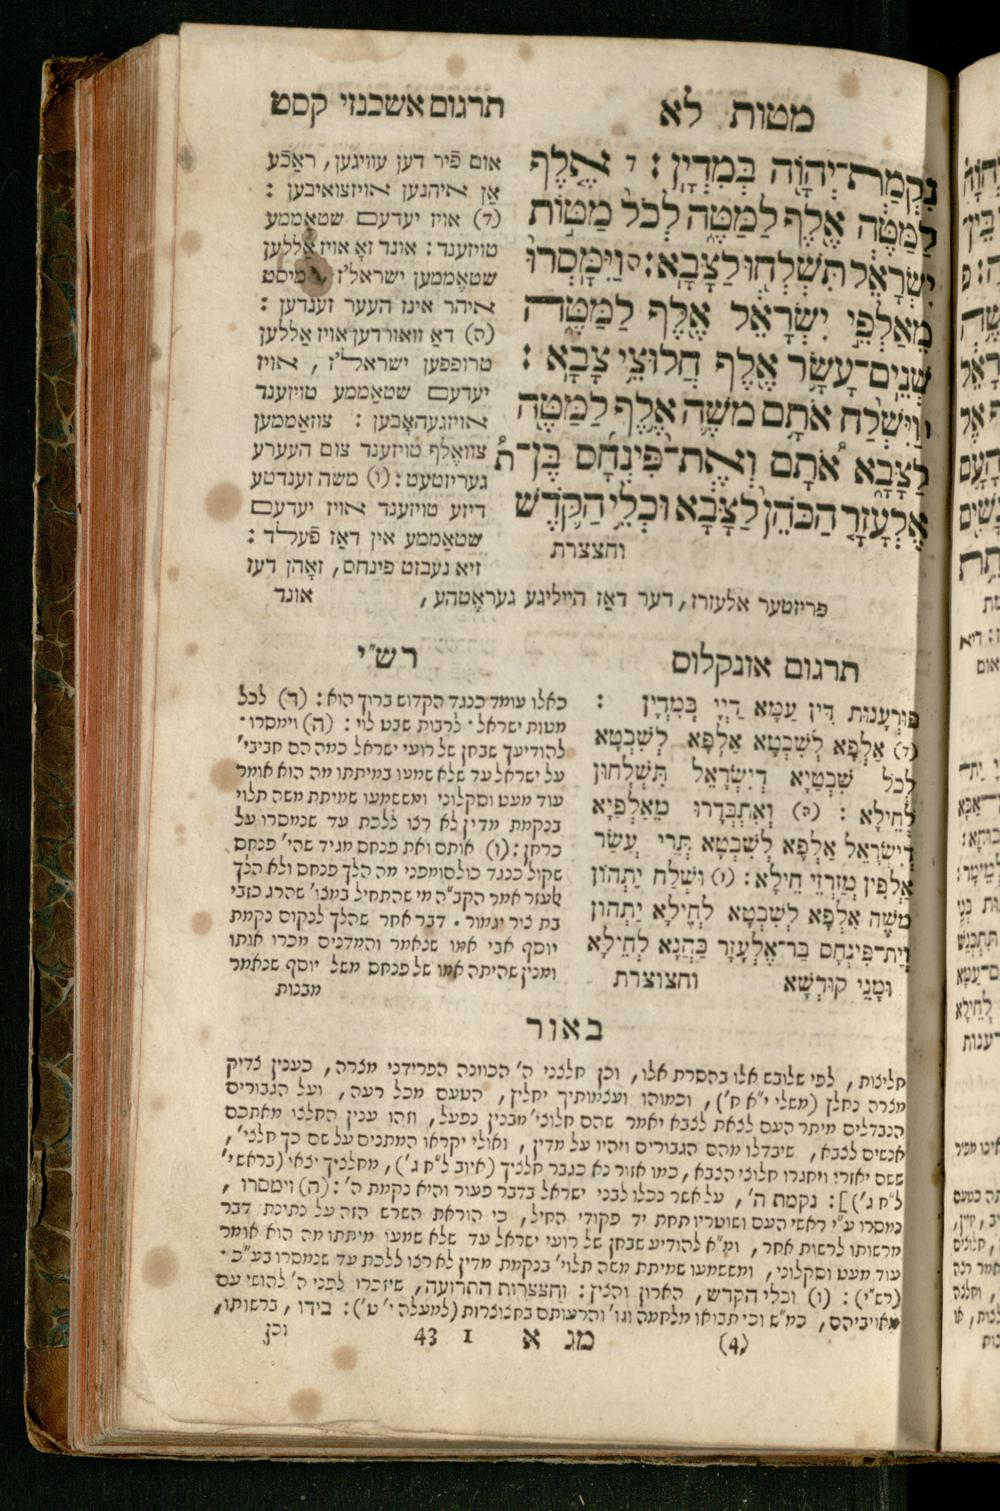 מטות לא
תרגום אשכנזי קסט
נִקְמַת־יְהוָֹה בְּמִדְיָן׃ ד אֶלֶף
לַמַּטֶּה אֶלֶף לַמַּטֶּה לְכֹל מַטּוֹת
יִשְׂרָאֵל תִּשְׁלְחוּ לַצָּבָא׃ ה וַיִּמָּסְרוּ
מֵאַלְפֵי יִשְׂרָאֵל אֶלֶף לַמַּטֶּה
שְׁנֵים־עָשָׂר אֶלֶף חֲלוּצֵי צָבָא׃
ו וַיִּשְׁלַח אֹתָם מֹשֶׁה אֶלֶף לַמַּטֶּה
לַצָּבָא אֹתָם וְאֶת־פִּינְחָס בֶּן־
אֶלְעָזָר הַכֹּהֵן לַצָּבָא וּכְלֵי הַקֹּדֶשׁ
וחצצרת
אום פֿיר דען עוויגען, ראַכֿע
אָן איהנען אויזצואיבען :
(ד) אויז יעדעם שטאַממע
טויזענד : אונד זאָ אויז אַללען
שטאַממען ישראל'ז מיסט
איהר אינז העער זענדען :
(ה) דאַ וואורדען אויז אַללען
טרופפען ישראל'ז , אויז
יעדעם שטאַממע טויזענד
אויזגעהאָבען : צוזאַממען
צוואָלף טויזענד צום העערע
געריזטעט : (ו) משה זענדטע
דיזע טויזענד אויז יעדעם
שטאַממע אין דאַז פֿעלד :
זיא נעבזט פינחס, זאָהן דעז
פריזטער אלעזרז, דער דאַז הייליגע געראָטהע, אונד
תרגום אונקלוס
פּוּרְעָנוּת דִּין עַמָּא דַיְיָ בְּמִדְיָן :
(ד) אַלְפָא לְשִׁבְטָא אַלְפָא לְשִׁבְטָא
לְכֹל שִׁבְטַיָּא דְיִשְׂרָאֵל תִּשְׁלְחוּן
לְחֵילָא : (ה) וְאִתְבְּחָרוּ מֵאַלְפַיָּא
דְיִשְׂרָאֵל אַלְפָא לְשִׁבְטָא תְּרֵי עֲשַׂר
אַלְפִין מְזָרְזֵי חֵילָא : (ו) וּשְׁלַח יָתְהוֹן
מֹשֶׁה אַלְפָא לְשִׁבְטָא לְחֵילָא יָתְהוֹן
וְיָת־פִּינְחָס בַּר־אֶלְעָזָר כַּהֲנָא לְחֵילָא
וּמָנֵי קוּדְשָׁא וחצוצרת
רש"י
כאלו עומד כנגד הקדוש ברוך הוא : (ד) לכל
מטות ישראל · לרבות שבט לוי : (ה) וימסרו ·
להודיעך שבחן של רועי ישראל כמה הם חביבי'
על ישראל עד שלא שמעו במיתתו מה הוא אומר
עוד מעט וסקלוני ומששמעו שמיתת משה תלוי
בנקמת מדין לא רצו ללכת עד שנמסרו על
כרחן : (ו) אותם ואת פנחס מגיד שהי' פנחס
שקול כנגד כולם ומפני מה הלך פנחס ולא הלך
אלעזר אמר הקב"ה מי שהתחיל במצו' שהרג כזבי
בת צור יגמור . דבר אחר שהלך לנקום נקמת
יוסף אבי אמו שנאמר והמדנים מכרו אותו
ומנין שהיתה אמו של פנחס משל יוסף שנאמר
מבנות
באור
חליצות, לפי שלובש אלו בהסרת אלו, וכן חלצני ה' הכוונה הפרידני מצרה, כענין צדיק
מצרה נחלץ (משלי י"א ח'), וכמוהו ועצמותיך יחליץ, הטעם מכל רעה, ועל הגבורים
הנבדלים מיתר העם לצאת לצבא יאמר שהם חלוצי' מבנין נפעל, וזהו ענין החלצו מאתכם
אנשים לצבא, שיבדלו מהם הגבורים ויהיו על מדין, ואולי יקראו המתנים על שם כך חלצי',
ששם יאזרו ויחגרו חלוצי הצבא, כמו אזור נא כגבר חלציך (איוב ל"ח ג'), מחלציך יצאו (בראשי'
ל"ח ג')]: נקמת ה', על אשר נכלו לבני ישראל בדבר פעור והיא נקמת ה' : (ה) וימסרו ,
נמסרו ע"י ראשי העם ושוטריו תחת יד פקודי החיל, כי הוראת השרש הזה על נתינת דבר
מרשותו לרשות אחר, ומ"א להודיע שבחן של רועי ישראל עד שלא שמעו מיתתו מה הוא אומר
עוד מעט וסקלוני, ומששמעו שמיתת משה תלוי' בנקמת מדין לא רצו ללכת עד שנמסרו בע"כ ·
(רש"י) : (ו) וכלי הקדש, הארון והציץ : וחצצרות התרועה, שיזכרו לפני ה' להושי עם
מאויביהם, כמ"ש וכי תבואו מלחמה וגו' והרעותם בחצוצרות (למעלה י' ט') : בידו, ברשותו,
וכן
(4) מג א 1 43